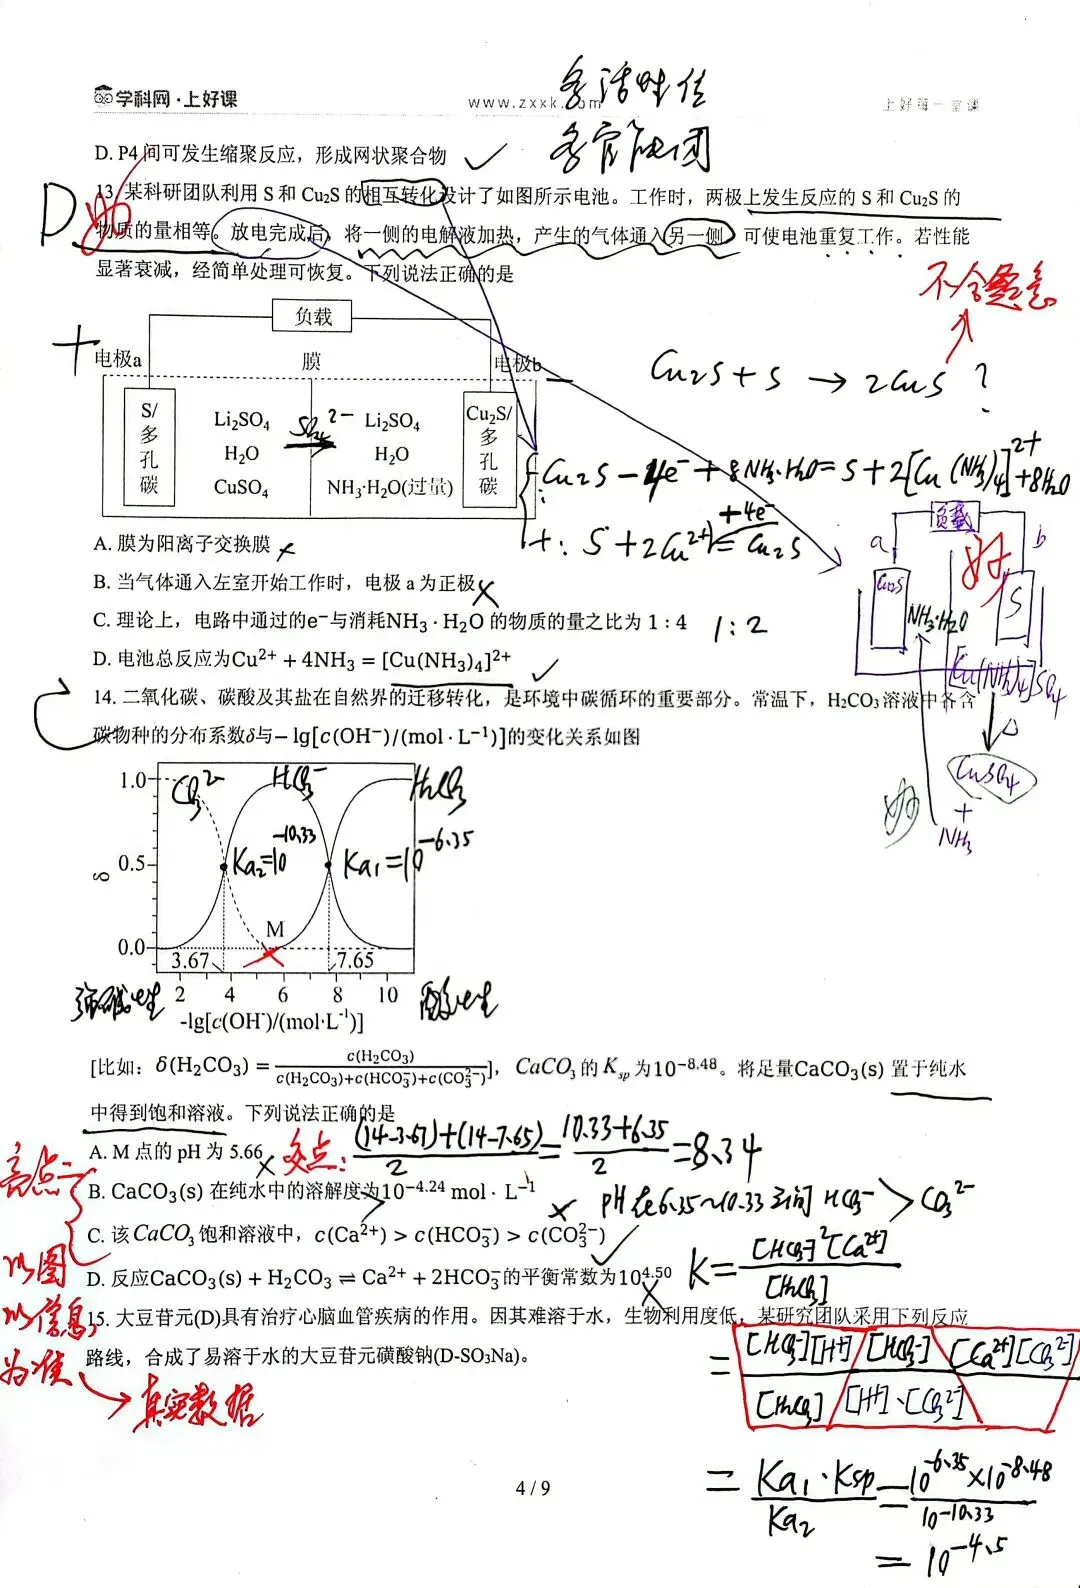 学科网·上好课
www.zxxk.com
上好每一堂课
多活性位
多官能团
D. P4间可发生缩聚反应，形成网状聚合物 ✓
D
妙
13. 某科研团队利用 S 和 Cu₂S 的相互转化设计了如图所示电池。工作时，两极上发生反应的 S 和 Cu₂S 的
物质的量相等。放电完成后，将一侧的电解液加热，产生的气体通入另一侧，可使电池重复工作。若性能
显著衰减，经简单处理可恢复。下列说法正确的是
不合题意
负载
+
电极a
膜
电极b
−
Cu₂S + S → 2CuS ?
S/多孔碳
Li₂SO₄
H₂O
CuSO₄
SO₄²⁻
Li₂SO₄
H₂O
NH₃·H₂O(过量)
Cu₂S/多孔碳
−: Cu₂S − 4e⁻ + 8NH₃·H₂O = S + 2[Cu(NH₃)₄]²⁺ + 8H₂O
+: S + 2Cu²⁺ +4e⁻ = Cu₂S
负载
a
b
妙
Cu₂S
S
NH₃·H₂O
[Cu(NH₃)₄]SO₄
△
CuSO₄
+
NH₃
妙
A. 膜为阳离子交换膜 ×
B. 当气体通入左室开始工作时，电极 a 为正极 ×
C. 理论上，电路中通过的e⁻与消耗NH₃·H₂O 的物质的量之比为 1∶4 1:2
D. 电池总反应为Cu²⁺ + 4NH₃ = [Cu(NH₃)₄]²⁺ ✓
C
14. 二氧化碳、碳酸及其盐在自然界的迁移转化，是环境中碳循环的重要部分。常温下，H₂CO₃溶液中各含
碳物种的分布系数δ与− lg[c(OH⁻)/(mol·L⁻¹)]的变化关系如图
1.0
0.5
0.0
δ
CO₃²⁻
HCO₃⁻
H₂CO₃
Ka₂=10^-10.33
Ka₁=10^-6.35
M
3.67
7.65
2 4 6 8 10
-lg[c(OH⁻)/(mol·L⁻¹)]
强碱性
酸性
[比如：δ(H₂CO₃) = c(H₂CO₃)/(c(H₂CO₃)+c(HCO₃⁻)+c(CO₃²⁻))]，CaCO₃的Ksp为10^−8.48。将足量CaCO₃(s) 置于纯水
中得到饱和溶液。下列说法正确的是
A. M 点的 pH 为 5.66 ×
交点: ((14-3.67)+(14-7.65))/2 = (10.33+6.35)/2 = 8.34
B. CaCO₃(s) 在纯水中的溶解度为10^−4.24 mol·L⁻¹ ×
>
pH在6.35~10.33之间 HCO₃⁻ > CO₃²⁻
C. 该CaCO₃饱和溶液中，c(Ca²⁺) > c(HCO₃⁻) > c(CO₃²⁻) ✓
D. 反应CaCO₃(s) + H₂CO₃ ⇌ Ca²⁺ + 2HCO₃⁻的平衡常数为10^4.50 ×
亮点一
以图
以信息
为准
→真实数据
K = [HCO₃⁻]²[Ca²⁺]/[H₂CO₃]
= [HCO₃⁻][H⁺]/[H₂CO₃] · [HCO₃⁻]/[H⁺]·[CO₃²⁻] [Ca²⁺][CO₃²⁻]
= Ka₁·Ksp/Ka₂ = 10^-6.35×10^-8.48/10^-10.33
= 10^-4.5
15. 大豆苷元(D)具有治疗心脑血管疾病的作用。因其难溶于水，生物利用度低，某研究团队采用下列反应
路线，合成了易溶于水的大豆苷元磺酸钠(D-SO₃Na)。
4 / 9